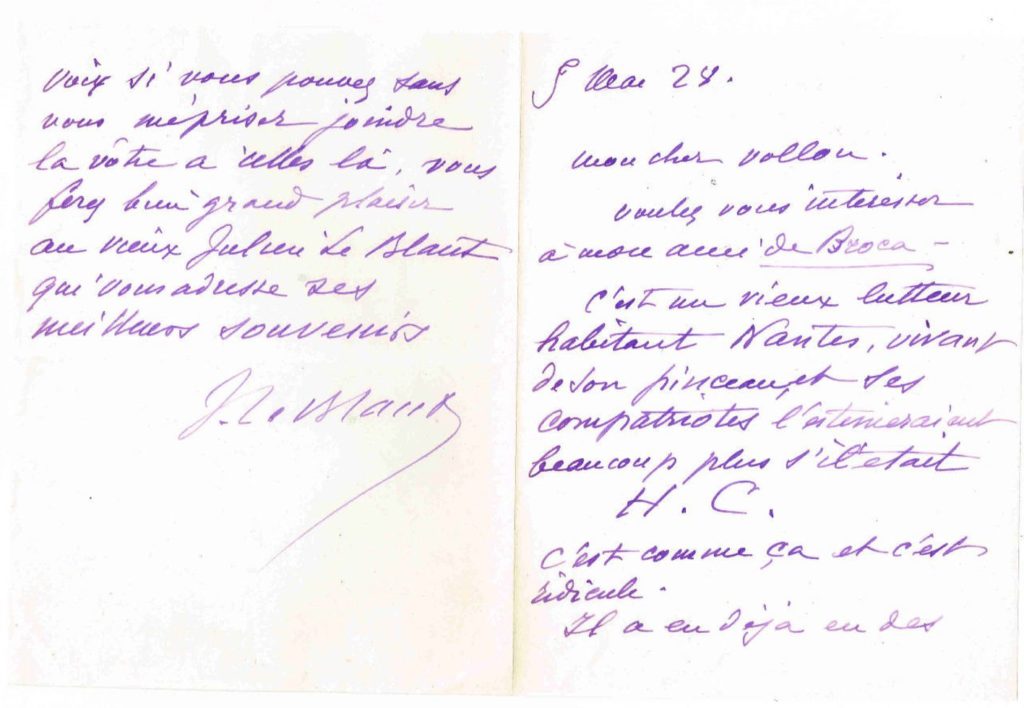 Mai 28.
mon cher vollon.
voulez vous intéresser
à mon ami de Broca -
c'est un vieux lutteur
habitant Nantes, vivant
de son pinceau, et ses
compatriotes l'estimeraient
beaucoup plus s'il était
H. C.
c'est comme ça et c'est
ridicule.
Il a eu déjà eu des
voix si vous pouvez sans
vous mépriser joindre
la vôtre à celles là, vous
ferez bien grand plaisir
au vieux Julien Le Blant
qui vous adresse ses
meilleurs souvenirs
J. Le Blant